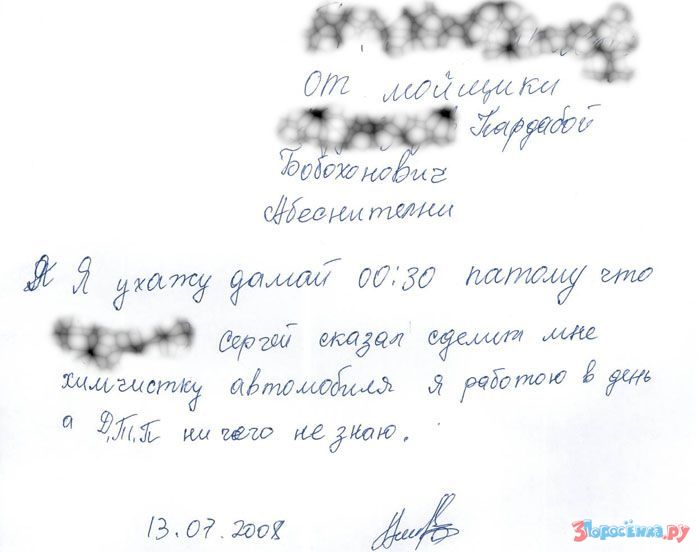 от мойщики
Кардабой
Бобохонович
Абеснителни
Я Я ухажу дамай 00:30 патому что
Сергей сказал сделит мне
химчистку автомобиля я работою в день
а Д.Т.П ни чего не знаю.
13.07.2008
3Поросёнка.ру